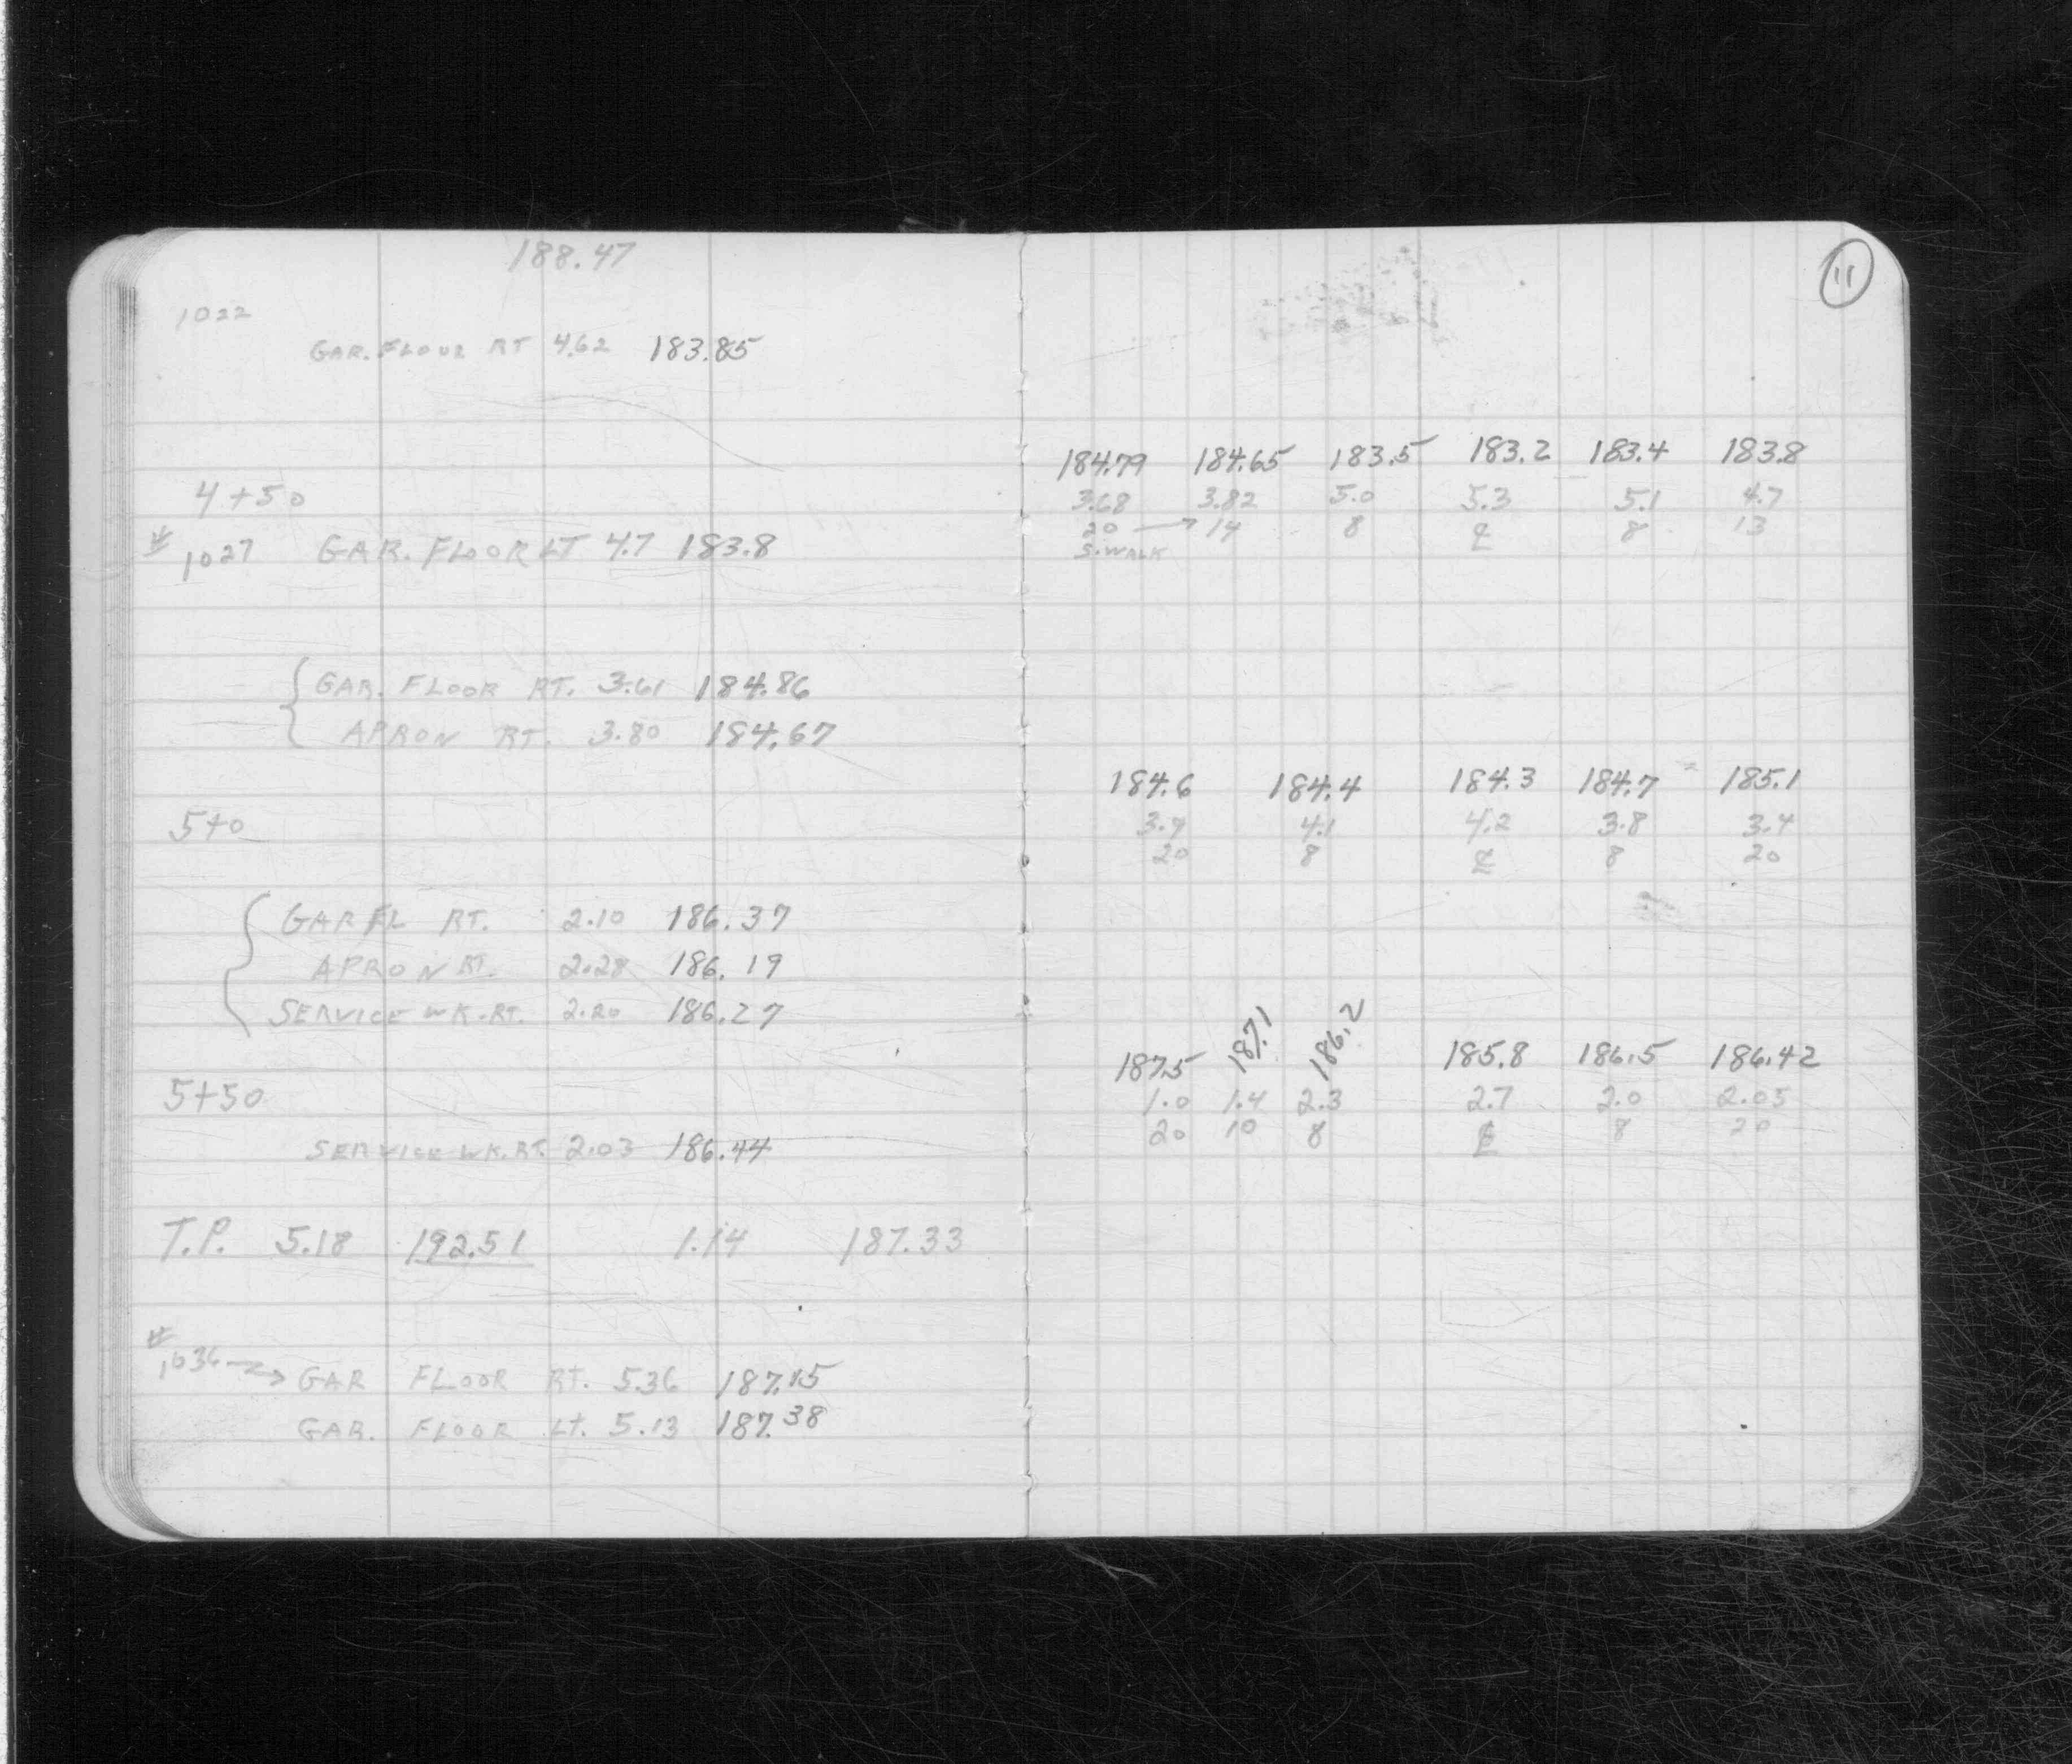 188.47
1022
GAR. FLOOR RT 4.62 183.85
4+50
#
1027 GAR. FLOOR LT 4.7 183.8
GAR. FLOOR RT. 3.61 184.86
APRON RT. 3.80 184.67
5+0
GAR FL RT. 2.10 186.37
APRON RT. 2.28 186.19
SERVICE WK. RT. 2.20 186.27
5+50
SERVICE WK. RT. 2.03 186.44
T.P. 5.18 192.51 1.14 187.33
#
1036 → GAR FLOOR RT. 5.36 187.15
GAR. FLOOR LT. 5.13 187.38
11
184.79 184.65 183.5 183.2 183.4 183.8
3.68 3.82 5.0 5.3 5.1 4.7
20 → 14 8 ℄ 8 13
S. WALK
184.6 184.4 184.3 184.7 185.1
3.9 4.1 4.2 3.8 3.4
20 8 ℄ 8 20
187.5 187.1 186.2 185.8 186.5 186.42
1.0 1.4 2.3 2.7 2.0 2.05
20 10 8 ℄ 8 20